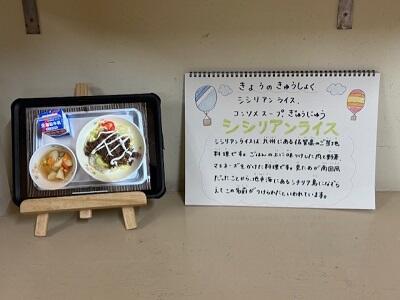 きょうのきゅうしょく
シシリアンライス、
コンソメスープ ぎゅうにゅう
シシリアンライス
シシリアンライスは九州にある佐賀県のご当地
料理です。ごはんの上に味つけした肉と野菜、
マヨネーズをかけた料理です。見ためが南国風
だったことから、地中海にあるシチリア島になぞら
えてこの名前がつけられたといわれています。